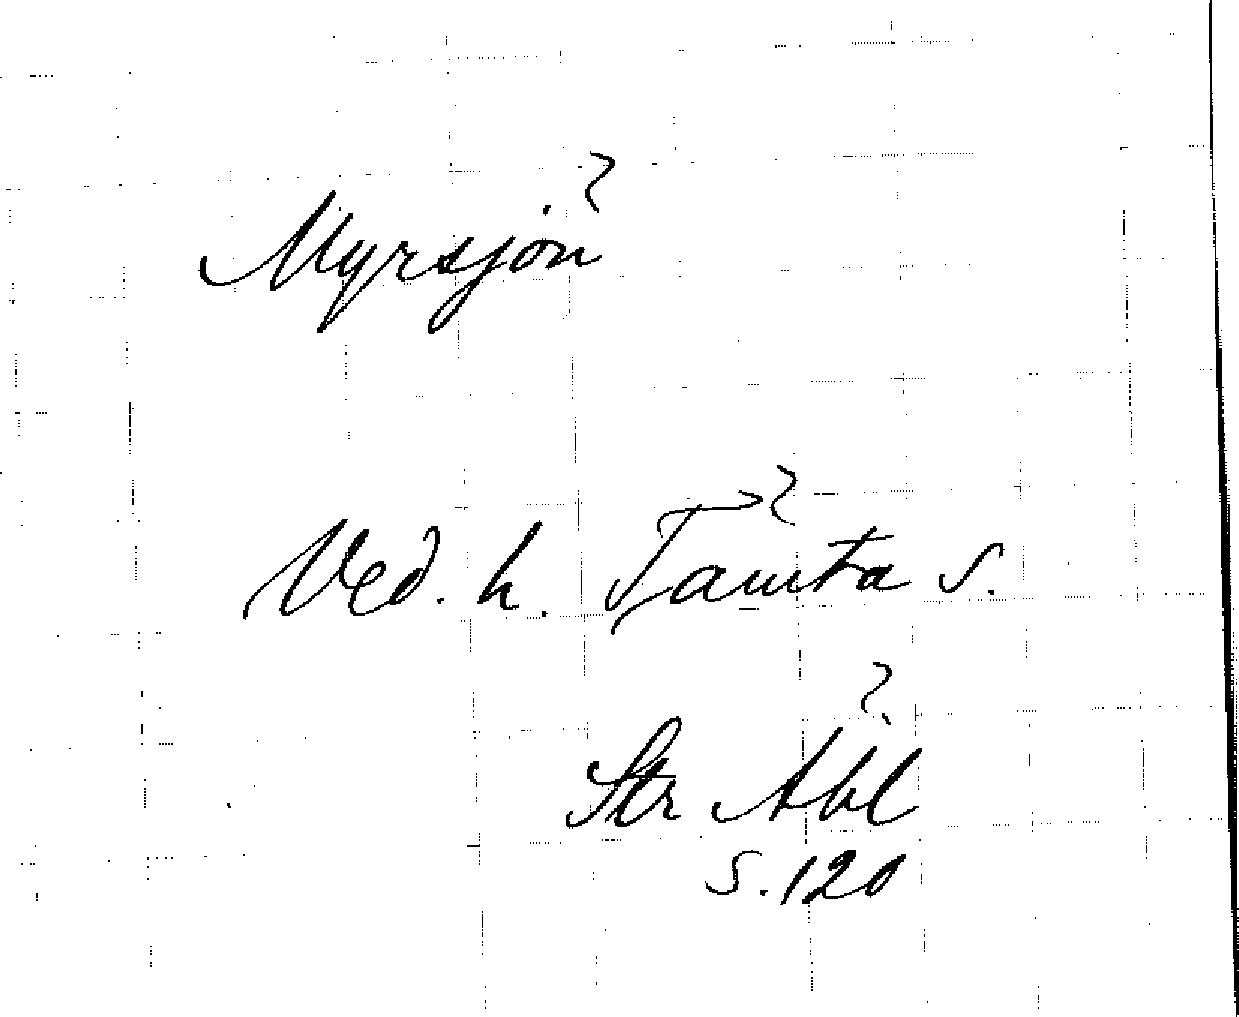 Myrsjön
Ved. h. Tämta s.
Str Abl
s. 120